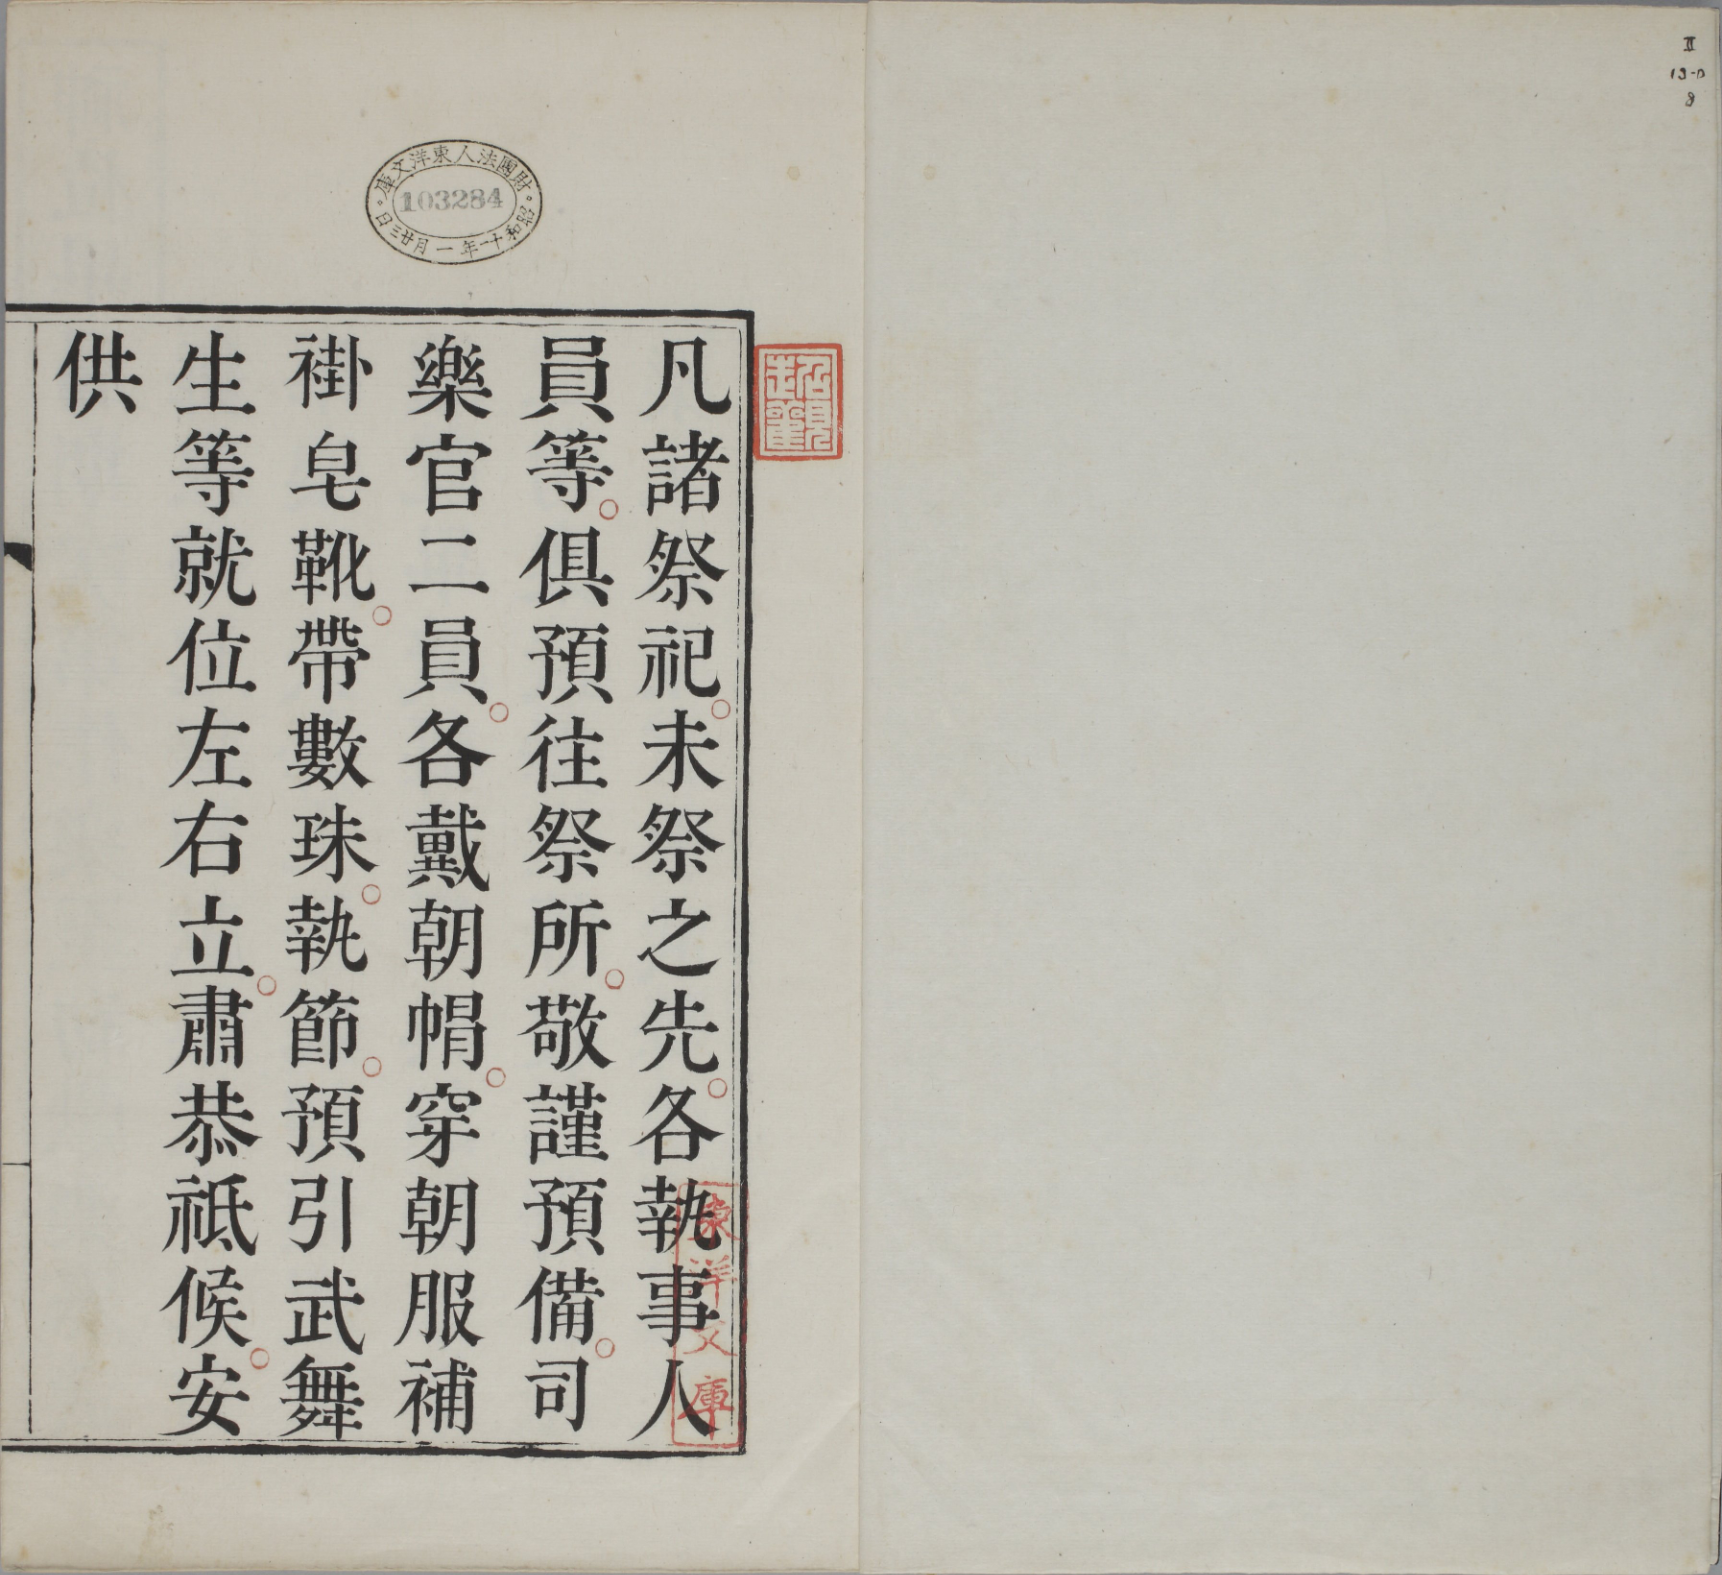 凡諸祭祀。未祭之先。各執事人
員等。俱預往祭所。敬謹預備。司
樂官二員。各戴朝帽。穿朝服補
褂皂靴。帶數珠。執節。預引武舞
生等就位左右立。肅恭祗候。安
供
財團法人東洋文庫
103284
昭和十一年一月廿三日
東洋文庫
II